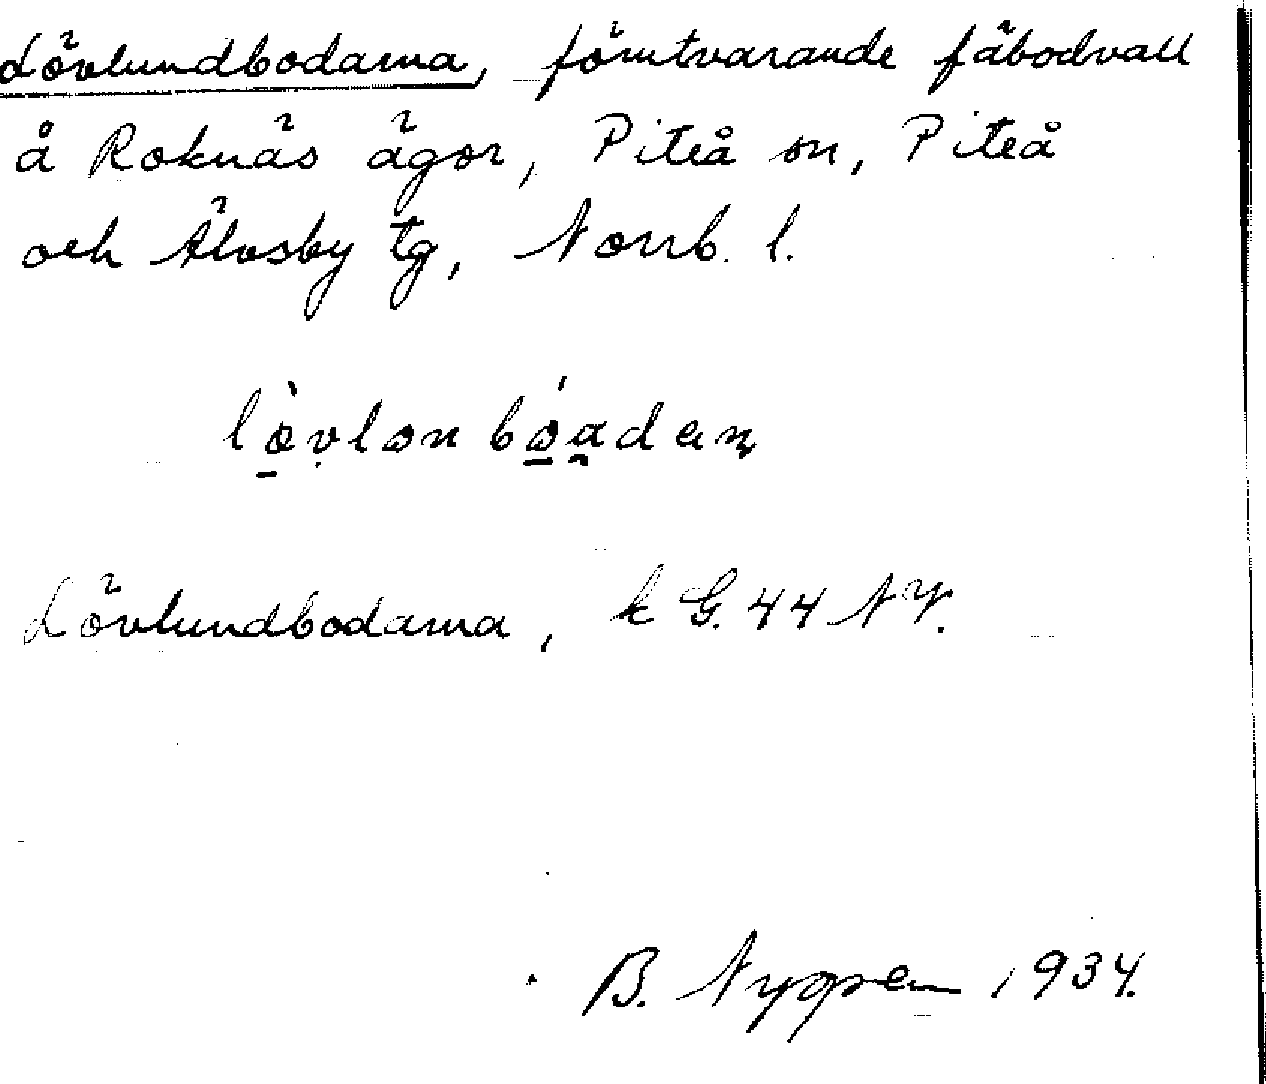 Lövlundbodarna, förutvarande fäbodvall
å Roknäs ägor, Piteå sn, Piteå
och Älvsby tg, Norrb. l.
lòvlonbóadaɳ
Lövlundbodarna, k G. 44 NV.
B. Nygren 1934.